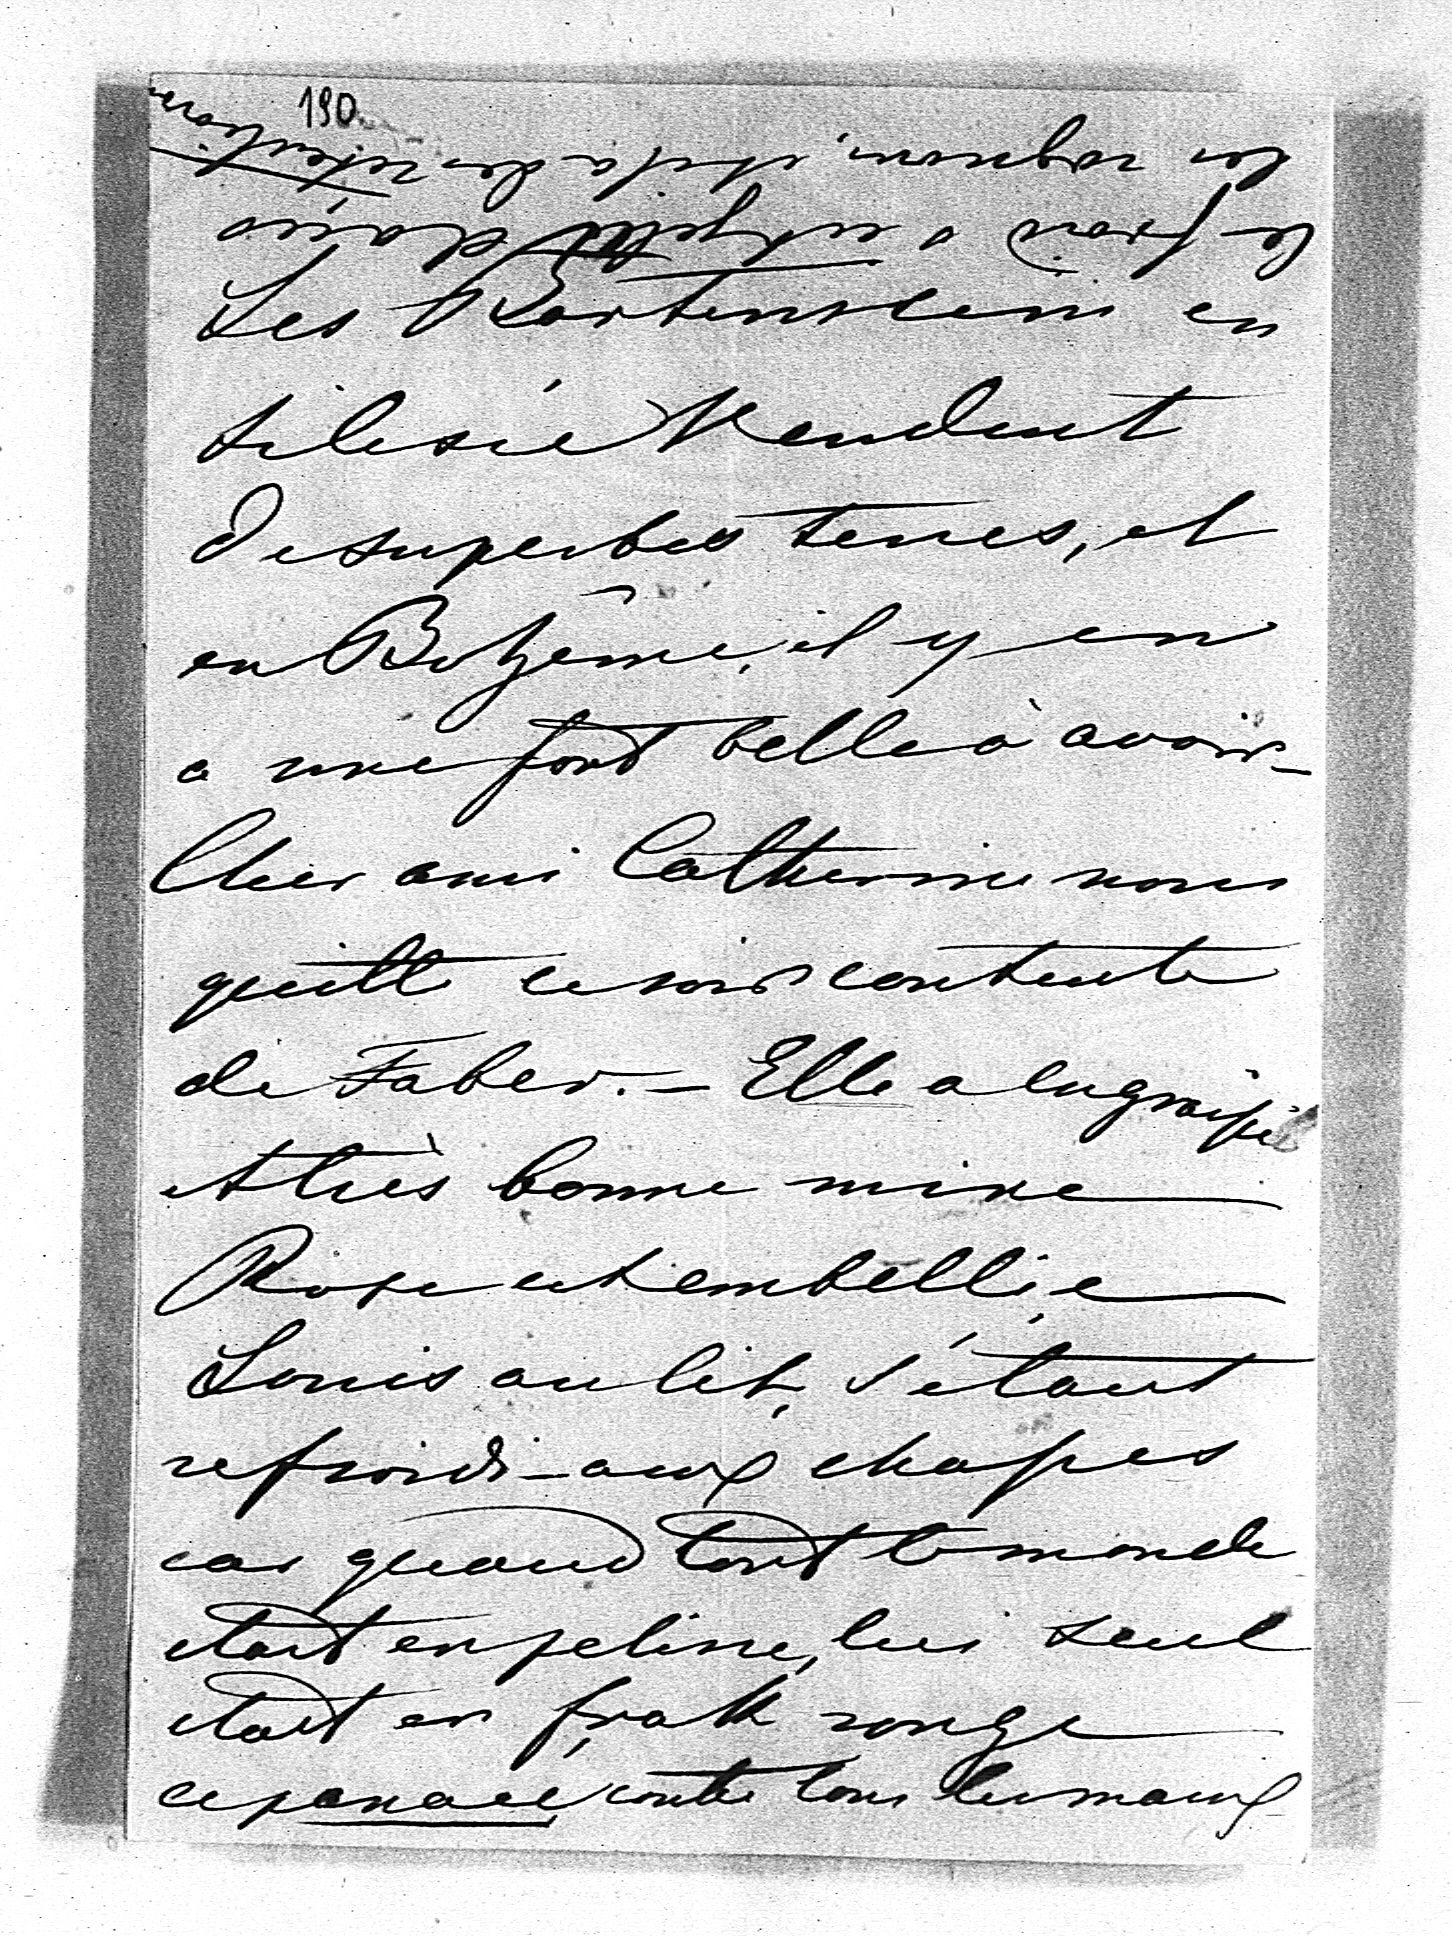 190
Les Hartenstein en
Silésie vendent
de superbes terres, et
en Bohême, il y en
a une fort belle à avoir –
Cher ami Catherine nous
quitte ce soir contente
de Faber. – Elle a engraissé
et très bonne mine
Rose est embellie
Louis au lit, s'étant
refroidi – aux chasses
car quand tout le monde
était en pelisse, lui seul
était en frakk rouge
ce panacé, contre tous les maux
le froid a
les rognons,